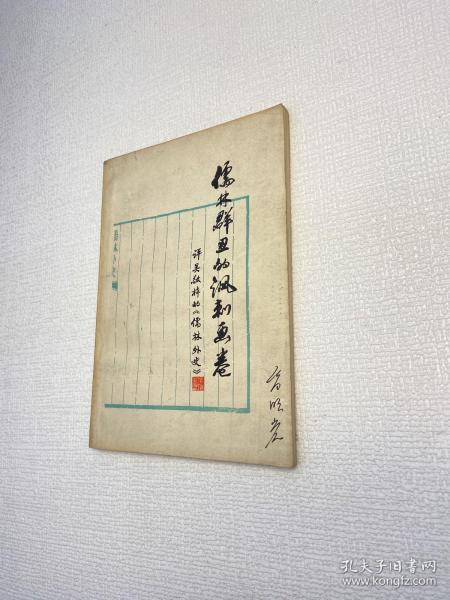 儒林群丑的讽刺画卷
评吴敬梓的《儒林外史》
孔夫子旧书网
www.kongfz.com